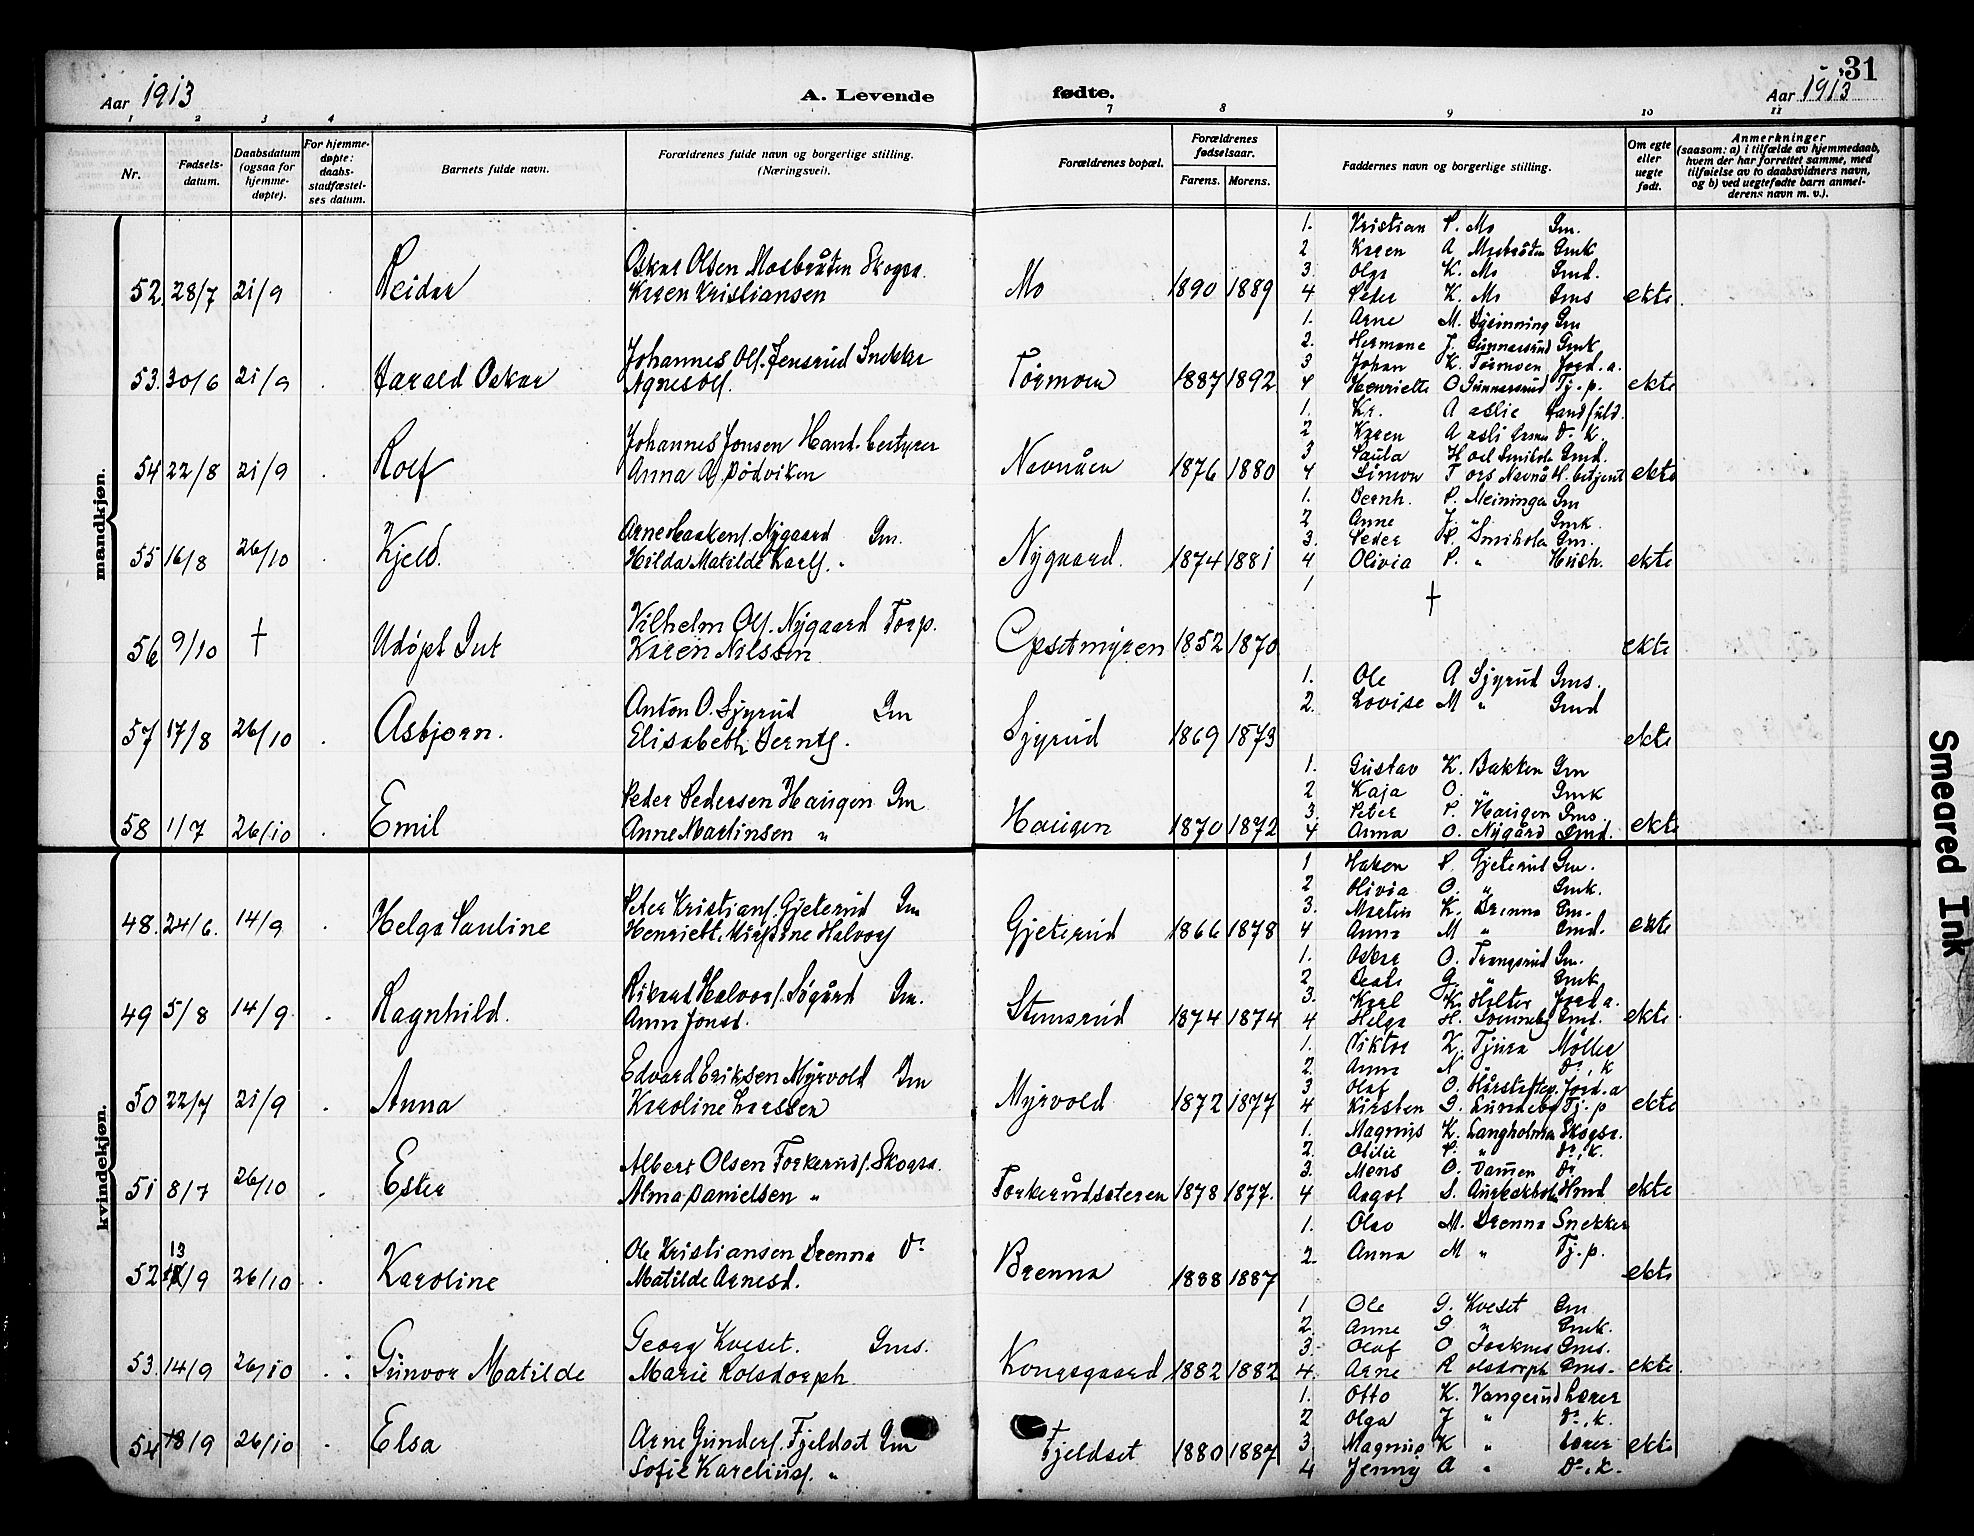 31
Aar 1913 A. Levende fødte. Aar 1913
1 2 3 4 7 8 9 10 11
Nr. Fødsels-datum. Daabsdatum (ogsaa for hjemme-døpte). For hjemme-døpte: daabs-stadfæstel-ses datum. Barnets fulde navn. Forældrenes fulde navn og borgerlige stilling. (Næringsvei). Forældrenes bopæl. Forældrenes fødselsaar. Farens. Morens. Faddernes navn og borgerlige stilling. Om egte eller uegte født. Anmerkninger (saasom: a) i tilfælde av hjemmedaab, hvem der har forrettet samme, med tilføielse av to daabsvidners navn, og b) ved uegtefødte barn anmel-derens navn m. v.).
mandkjøn.
1. Kristian P. Mo Gm.
2 Karen A Mosbråten Gmk
Oskar Olsen Mosbråten Skogsa.
3. Olga K. Mo Gmd.
52. 28/7 21/9 Reidar Karen Kristiansen Mo 1890 1889 4 Peder K. Mo Gms ekte
1. Arne M. Gm
2. Hermane J. Gunnarsrud Gmk
Johannes Ols. Jensrud Snekker
3 Johan K. Tørmoen Jord.a.
53. 30/6 21/9 Harald Oskar Agnes Ols. Tørmoen 1887 1892 4 Henriette O Gunnarsrud Tj.p. ekte
1. Kr. A aslie
2 Karen A asli D. K.
Johannes Jonsen Hand. bestyrer
3 Paula H oel Smihole Gmd.
54 22/8 21/9 Rolf Anna A. Bødviken Navnåen 1876 1880 4 Simon T ors Navnå H. betjent ekte
1. Bernh. P. Meiningen Gm
2 Anne J. " Gmk.
Arne Haakens. Nygaard Gm.
3. Peder P. Smiholen Gm.
55 16/8 26/10 Kjeld. Hilda Matilde Karls. " Nygaard. 1874 1881 4 Olivia P. " Hush. ekte
1 †
Vilhelm Ols. Nygaard Torp.
56 9/10 † Udøpt Gut Karen Nilssen Opsetmyren 1852 1870 ekte
1. Ole A Sjyrud Gms.
2. Lovise M " Gmd
Anton O. Sjyrud Gm
57 17/8 26/10 Asbjørn. Elisabeth Bernts. Sjyrud 1869 1873 ekte
1. Gustav K. Bakken Gm
2 Kaja O. " Gmk
Peder Pedersen Haugen Gm
3. Peter P. Haugen Gms.
58 1/7 26/10 Emil Anne Martinsen " Haugen 1870 1872 4 Anna O. Nygård Gmd. ekte
kvindekjøn.
1 Haken P. Gjeterud Gm.
2 Olivia O. " Gmk.
Peter Kristians. Gjeterud Gm
3. Martin K. Brenna Gm.
48. 24/6. 14/9 Helga Pauline Henriett. Halvors Gjeterud 1866 1878 4 Anna M " Gmd. ekte
1. Oskar O. Trangsrud Gm.
2 Beate G. " Gmk
Rikard Halvors. Søgård Gm.
3. Karl K. Holter Jord a.
49 5/8 14/9 Ragnhild. Anna Jonsd. Stensrud 1874 1874 4 Helga H. Gmd. ekte
1. Viktor K. Tjura Møller
2. Anna N " D., K
Edvard Eriksen Myrvold Gm
3 Olaf O. Jord.a
50 22/7 21/9 Anna Karoline Larssen Myrvold 1872 1877 4 Kirsten G. Lundeby Tj.p ekte
1. Magnus K. Langholmen Skogsa.
2. Otilie P. " D., K.
Albert Olsen Torkerud s. Skogsa.
3. Mons O. Dammen D.
51 8/7 26/10 Ester Alma Danielsen " Torkerudseteren 1878 1877. 4 Aagot S. ekte
1. Olso M. Brenna Snekker
Ole Kristiansen Brenna D.
2. Anna M " Tj.p.
52 13/9 26/10 Karoline Matilde Arnesd. Brenna 1888 1887 ekte
1. Ole G. Kveset Gm
2. Anne G " Gmk.
Georg Kveset. Gms.
3. Olaf O Gms.
53. 14/9 26/10 Gunvor Matilde Marie Rolsdorph Kongsgaard 1882 1882 4. Arne R olsdorph Gms. ekte
1. Otto K. Vangerud Lærer
2 Olga J " D., k.
Arne Gunders. Fjeldset Gm
54 18/9 26/10 Elsa Fjeldset 1880 1887 3. Magnus K " Lærer ekte
Sofie Karelius s. " 4 Jenny A " D., k.
Smeared Ink